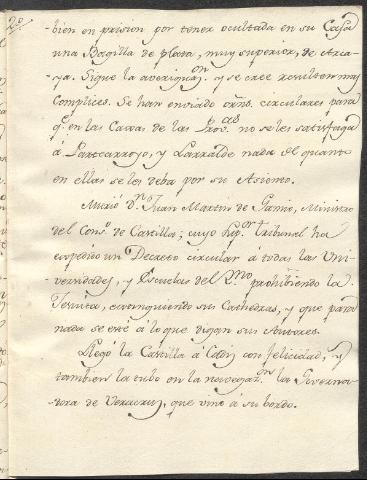 2º
bien en prision por tener ocultada en su Casa
una Bagilla de plata, muy superior, de Aria-
za. Sigue la averiguaⁿ. y se cree resulten muchos
Complices. Se han enviado orñs. circulares para
qᵉ. en las Caxas de las Provᵃˢ. no se les satisfaga
á Larrald nada de quanto
en ellas se les deba por su Asiento.
Murió Dⁿ. Juan Martin de Gamio, Ministro
del Consº. de Castilla; cuyo Supᵒʳ. Tribunal ha
expedido un Decreto circular á todas las Uni-
versidades, y Escuelas del Rⁿᵒ. prohibiendo la
Jesuita, extinguiendo sus Cathedras, y que para
nada se esté á lo que digan sus Autores.
Llegó la Castilla á Cadiz con felicidad, y
tambien la tubo en la navegazᵒⁿ. la Governa-
dora de Veracruz, que vino á su bordo.